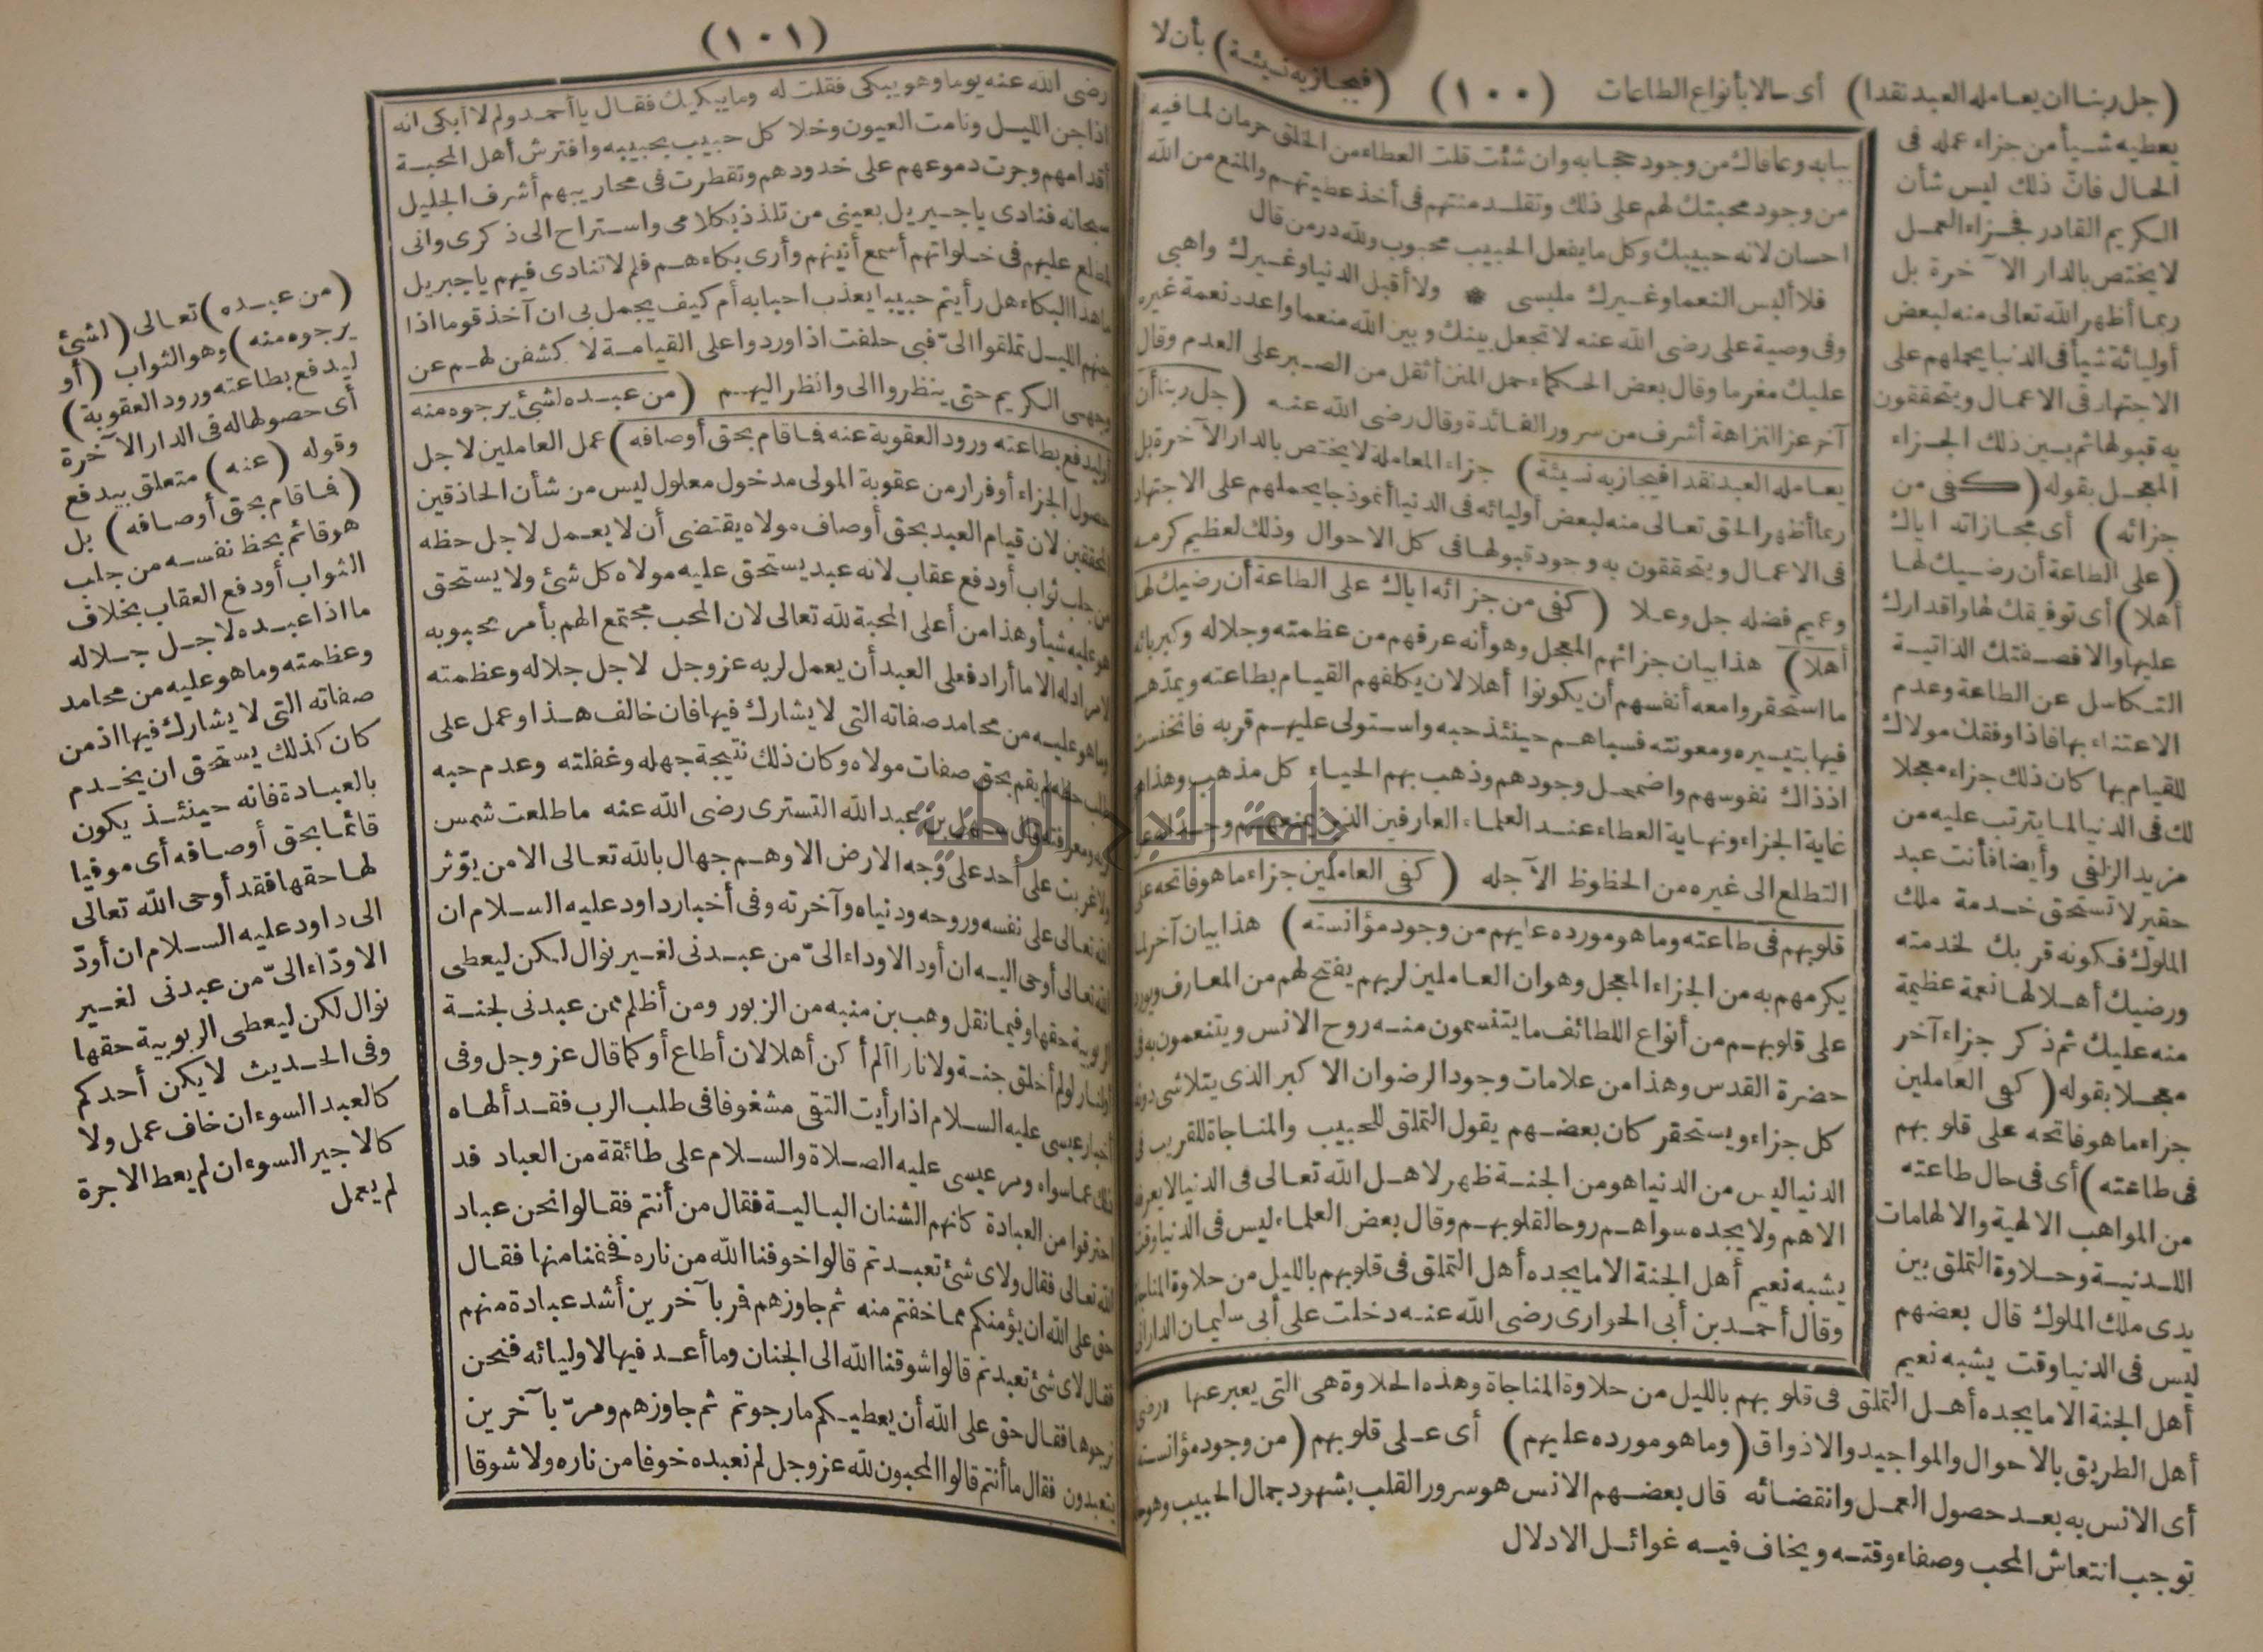 (جل ربنا ان يعامله العبد نقدا) أى حالا بأنواع الطاعات (١٠٠) (فيجازيه نسيئة) بأن لا
يعطيه شيأ من جزاء عمله فى
الحال فان ذلك ليس شأن
الكريم القادر فجزاء العمل
لا يختص بالدار الآخرة بل
ربما أظهر الله تعالى منه لبعض
أوليائه شيأ فى الدنيا يحملهم على
الاجتهاد فى الاعمال ويتحققون
به قبولها ثم بين ذلك الجزاء
المعجل بقوله (كفى من
جزائه) أى مجازاته اياك
(على الطاعة أن رضيك لها
أهلا) أى توفيقك لها واقدارك
عليها والا فصفتك الذاتية
التكاسل عن الطاعة وعدم
الاعتناء بها فاذا وفقك مولاك
للقيام بها كان ذلك جزاء معجلا
لك فى الدنيا لما يترتب عليه من
مزيد الزلفى وأيضا فأنت عبد
حقير لا تستحق خدمة ملك
الملوك فكونه قربك لخدمته
ورضيك أهلا لها نعمة عظيمة
منه عليك ثم ذكر جزاء آخر
معجلا بقوله (كفى العاملين
جزاء ما هو فاتحه على قلوبهم
فى طاعته) أى فى حال طاعته
من المواهب الالهية والالهامات
اللدنية وحلاوة التملق بين
يدى ملك الملوك قال بعضهم
ليس فى الدنيا وقت يشبه نعيم
أهل الجنة الا ما يجده أهل التملق فى قلوبهم بالليل من حلاوة المناجاة وهذه الحلاوة هى التى يعبر عنها
أهل الطريق بالاحوال والمواجيد والاذواق (وما هو مورده عليهم) أى على قلوبهم (من وجود مؤانسته
أى الانس به بعد حصول العمل وانقضائه قال بعضهم الانس هو سرور القلب بشهود جمال الحبيب وهو
توجب انتعاش المحب وصفاء وقته ويخاف فيه غوائل الادلال
ببابه وعافاك من وجود حجابه وان شئت قلت العطاء من الخلق حرمان لما فيه
من وجود محبتك لهم على ذلك وتقلد منتهم فى أخذ عطيتهم والمنع من الله
احسان لانه حبيبك وكل ما يفعل الحبيب محبوب ولله در من قال
فلا ألبس النعما وغيرك ملبسى * ولا أقبل الدنيا وغيرك واهبى
وفى وصية على رضى الله عنه لا تجعل بينك وبين الله منعما واعدد نعمة غيره
عليك مغرما وقال بعض الحكماء حمل المنن أثقل من الصبر على العدم وقال
آخر عز النزاهة أشرف من سرور الفائدة وقال رضى الله عنه (جل ربنا أن
يعامله العبد نقدا فيجازيه نسيئة) جزاء المعاملة لا يختص بالدار الآخرة بل
ربما أظهر الحق تعالى منه لبعض أوليائه فى الدنيا أنموذجا يحملهم على الاجتهاد
فى الاعمال ويتحققون به وجود قبولها فى كل الاحوال وذلك لعظيم كرمه
وعميم فضله جل وعلا (كفى من جزائه اياك على الطاعة أن رضيك لها
أهلا) هذا بيان جزائهم المعجل وهو أنه عرفهم من عظمته وجلاله وكبريائه
ما استحقروا معه أنفسهم أن يكونوا أهلا لان يكلفهم القيام بطاعته ويمدهم
فيها بتيسيره ومعونته فسباهم حينئذ حبه واستولى عليهم قربه فانخنست
اذ ذاك نفوسهم واضمحل وجودهم وذهب بهم الحياء كل مذهب وهذا هو
غاية الجزاء ونهاية العطاء عند العلماء العارفين الذين
التطلع الى غيره من الحظوظ الآجله (كفى العاملين جزاء ما هو فاتحه على
قلوبهم فى طاعته وما هو مورده عليهم من وجود مؤانسته) هذا بيان آخر لما
يكرمهم به من الجزاء المعجل وهو ان العاملين لربهم يفتح لهم من المعارف ويورد
على قلوبهم من أنواع اللطائف ما يتنسمون منه روح الانس ويتنعمون به فى
حضرة القدس وهذا من علامات وجود الرضوان الاكبر الذى يتلاشى دونه
كل جزاء ويستحقر كان بعضهم يقول التملق للحبيب والمناجاة للقريب فى
الدنيا ليس من الدنيا هو من الجنة ظهر لاهل الله تعالى فى الدنيا لا يعرفه
الاهم ولا يجده سواهم روحا لقلوبهم وقال بعض العلماء ليس فى الدنيا وقت
يشبه نعيم أهل الجنة الا ما يجده أهل التملق فى قلوبهم بالليل من حلاوة المناجاة
وقال أحمد بن أبى الحوارى رضى الله عنه دخلت على أبى سليمان الدارانى
رضى
(١٠١)
رضى الله عنه يوما وهو يبكى فقلت له وما يبكيك فقال يا أحمد ولم لا أبكى انه
اذا جن الليل ونامت العيون وخلا كل حبيب بحبيبه وافترش أهل المحبة
أقدامهم وجرت دموعهم على خدودهم وتقطرت فى محاريبهم أشرف الجليل
سبحانه فنادى يا جبريل بعينى من تلذذ بكلامى واستراح الى ذكرى وانى
لمطلع عليهم فى خلواتهم أسمع أنينهم وأرى بكاءهم فلم لا تنادى فيهم يا جبريل
ما هذا البكاء هل رأيتم حبيبا يعذب احبابه أم كيف يجمل بى ان آخذ قوما اذا
جنهم الليل تملقوا الىّ فبى حلفت اذا وردوا على القيامة لاكشفن لهم عن
وجهى الكريم حتى ينظروا الى وانظر اليهم (من عبده لشئ يرجوه منه
أو ليدفع بطاعته ورود العقوبة عنه فما قام بحق أوصافه) عمل العاملين لاجل
حصول الجزاء أو فرار من عقوبة المولى مدخول معلول ليس من شأن الحاذقين
المحققين لان قيام العبد بحق أوصاف مولاه يقتضى أن لا يعمل لاجل حظه
من جلب ثواب أو دفع عقاب لانه عبد يستحق عليه مولاه كل شئ ولا يستحق
هو عليه شيأ وهذا من أعلى المحبة لله تعالى لان المحب مجتمع الهم بأمر محبوبه
لا مراد له الا ما أراد فعلى العبد أن يعمل لربه عز وجل لاجل جلاله وعظمته
وما هو عليه من محامد صفاته التى لا يشارك فيها فان خالف هذا وعمل على
طلب حظه لم يقم بحق صفات مولاه وكان ذلك نتيجة جهله وغفلته وعدم حبه
له ومعرفته قال سهل بن عبد الله التسترى رضى الله عنه ما طلعت شمس
ولا غربت على أحد على وجه الارض الا وهم جهال بالله تعالى الا من يؤثر
الله تعالى على نفسه وروحه ودنياه وآخرته وفى أخبار داود عليه السلام ان
الله تعالى أوحى اليه ان أود الاوداء الىّ من عبدنى لغير نوال لكن ليعطى
الربوبية حقها وفيما نقل وهب بن منبه من الزبور ومن أظلم ممن عبدنى لجنة
أو لنار لو لم أخلق جنة ولا نارا ألم أكن أهلا لان أطاع أو كما قال عز وجل وفى
أخبار عيسى عليه السلام اذا رأيت التقى مشغوفا فى طلب الرب فقد ألهاه
ذلك عما سواه ومر عيسى عليه الصلاة والسلام على طائفة من العباد قد
احترقوا من العبادة كانهم الشنان البالية فقال من أنتم فقالوا نحن عباد
الله تعالى فقال ولاى شئ تعبدتم قالوا خوفنا الله من ناره فخفنا منها فقال
حق على الله ان يؤمنكم مما خفتم منه ثم جاوزهم فمر بآخرين أشد عبادة منهم
فقال لاى شئ تعبدتم قالوا شوقنا الله الى الجنان وما أعد فيها لاوليائه فنحن
نرجوها فقال حق على الله أن يعطيكم ما رجوتم ثم جاوزهم ومرّ بآخرين
يتعبدون فقال ما أنتم قالوا المحبون لله عز وجل لم نعبده خوفا من ناره ولا شوقا
(من عبده) تعالى (لشئ
يرجوه منه) وهو الثواب (أو
ليدفع بطاعته ورود العقوبة)
أى حصولها له فى الدار الآخرة
وقوله (عنه) متعلق بيدفع
(فما قام بحق أوصافه) بل
هو قائم بحظ نفسه من جلب
الثواب أو دفع العقاب بخلاف
ما اذا عبده لاجل جلاله
وعظمته وما هو عليه من محامد
صفاته التى لا يشارك فيها اذ من
كان كذلك يستحق ان يخدم
بالعبادة فانه حينئذ يكون
قائما بحق أوصافه أى موفيا
لها حقها فقد أوحى الله تعالى
الى داود عليه السلام ان أودّ
الاودّاء الىّ من عبدنى لغير
نوال لكن ليعطى الربوبية حقها
وفى الحديث لا يكن أحدكم
كالعبد السوء ان خاف عمل ولا
كالاجير السوء ان لم يعط الاجرة
لم يعمل
جامعة النجاح الوطنية